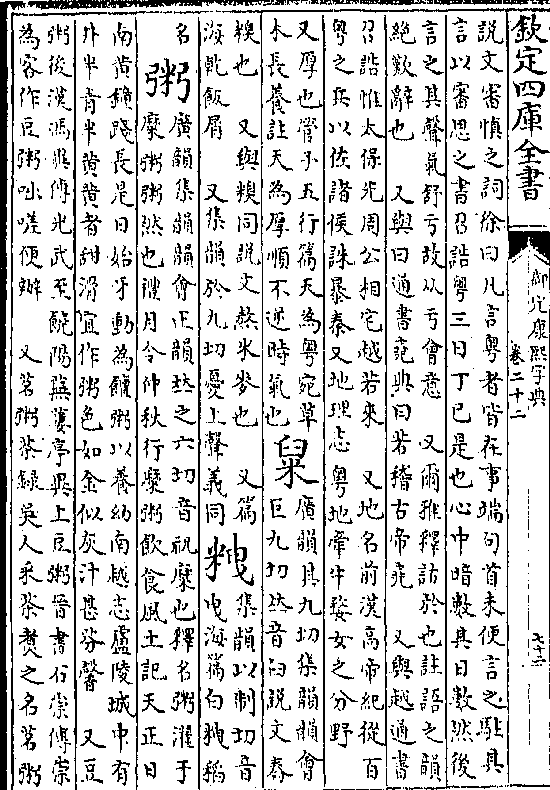 欽定四庫全書
御定康熙字典
卷二十二
七十二
說文審慎之詞徐曰凡言粤者皆在事端句首未便言之駐其
言以審思之書召誥粤三日丁巳是也心中暗數其日數然後
言之其聲氣舒亏故从亏會意 又爾雅釋詁於也註語之韻
絶歎辭也 又與曰通書堯典曰若稽古帝堯 又與越通書
召誥惟太保先周公相宅越若來 又地名前漢高帝紀從百
粤之兵以佐諸侯誅暴秦又地理志粤地牽牛婺女之分野
又厚也管子五行篇天為粤宛草
木長養註天為厚順不逆時氣也
䊆廣韻其九切集韻韻會
巨九切𠀤音臼說文舂
糗也 又與糗同説文熬米麥也 又篇
海乾飯屑 又集韻於九切憂上聲義同
䊦集韻以制切音
曳海篇白䊦稻
名
粥廣韻集韻韻會正韻𠀤之六切音祝糜也釋名粥濯于
糜粥粥然也禮月令仲秋行糜粥飲食風土記天正日
南黄鐘踐長是日始牙動為饘粥以養幼南越志盧陵城中有
井半青半黄黄者甜滑宜作粥色如金似灰汁甚芬馨 又豆
粥後漢馮異傳光武至饒陽蕪蔞亭異上豆粥晉書石崇傳崇
為客作豆粥咄嗟便辦 又茗粥茶錄吳人采茶煑之名茗粥